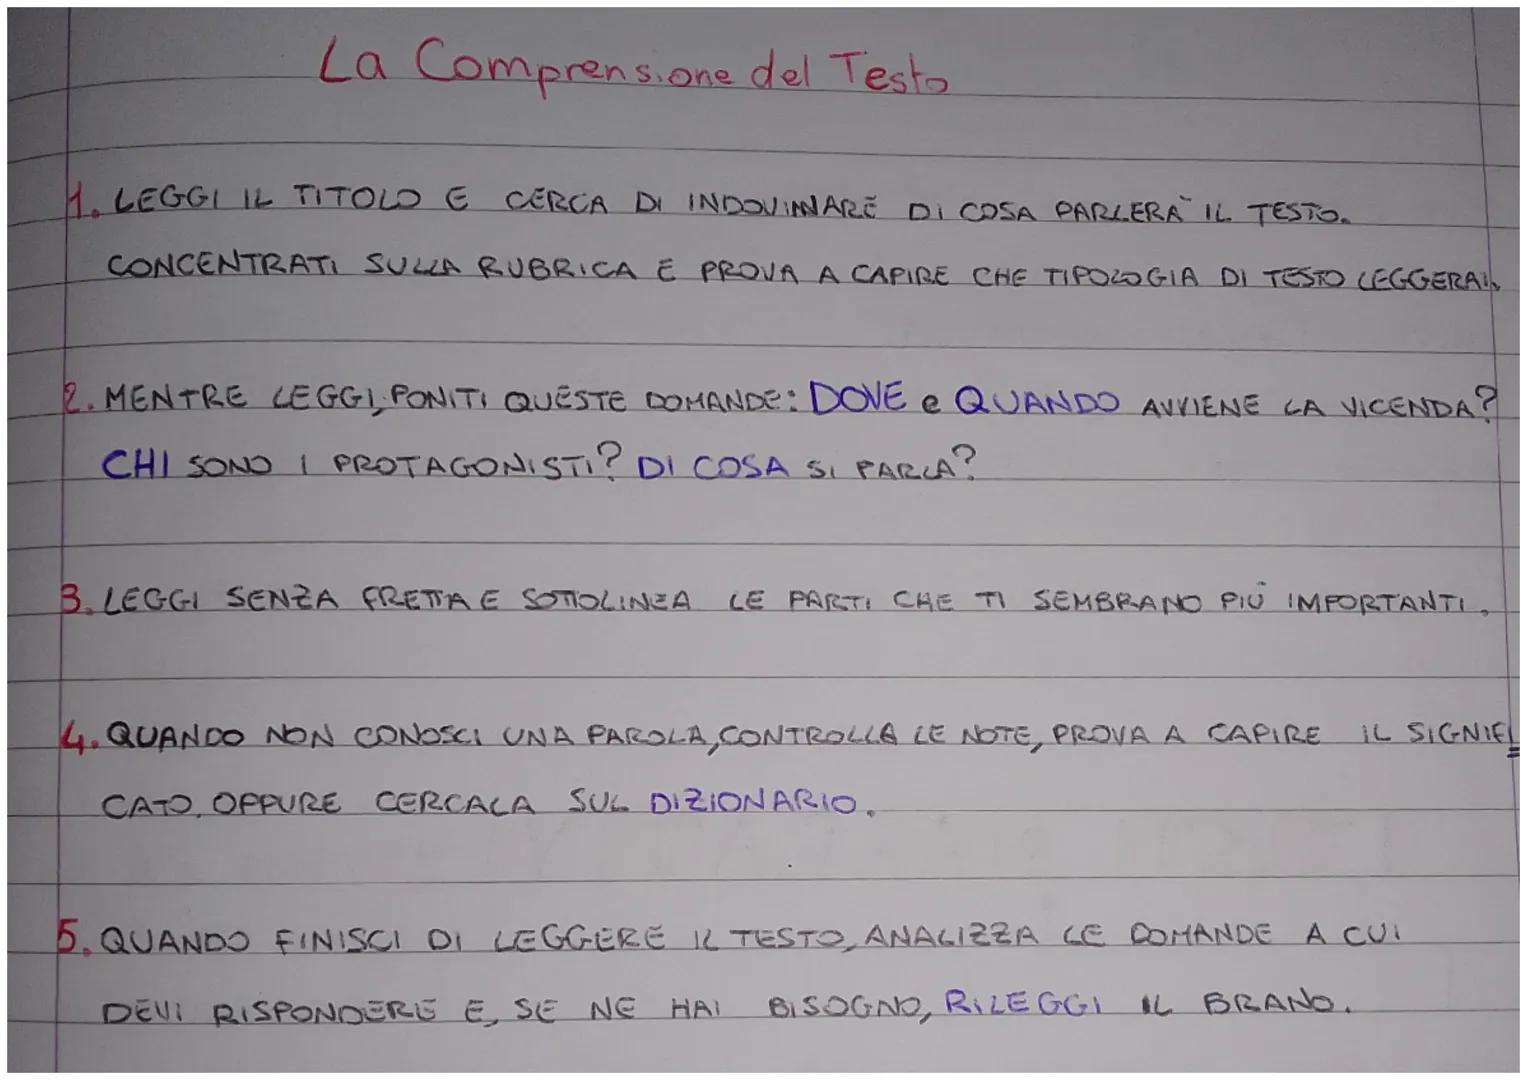 La Comprensione del Testo
1. LEGGI IL TITOLO E CERCA DI INDOVINARE DI COSA PARLERÀ IL TESTO.
CONCENTRATI SULLA RUBRICA E PROVA A CAPIRE CHE TIPOLOGIA DI TESTO LEGGERAI.
2. MENTRE LEGGI, PONITI QUESTE DOMANDE: DOVE e QUANDO AVVIENE LA VICENDA?
CHI SONO I PROTAGONISTI? DI COSA SI PARLA?
3. LEGGI SENZA FRETTA E SOTTOLINEA LE PARTI CHE TI SEMBRANO PIÙ IMPORTANTI.
4. QUANDO NON CONOSCI UNA PAROLA, CONTROLLA LE NOTE, PROVA A CAPIRE IL SIGNIFI=
CATO, OPPURE CERCALA SUL DIZIONARIO.
5. QUANDO FINISCI DI LEGGERE IL TESTO, ANALIZZA LE DOMANDE A CUI
DEVI RISPONDERE E, SE NE HAI BISOGNO, RILEGGI IL BRANO.